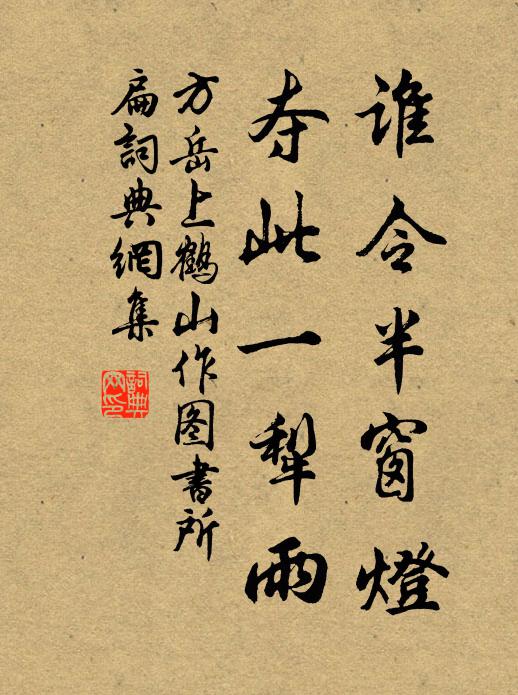 谁令半窗燈
夺此一犁雨
方岳上鶴山作图書所
扁詞典網集
詞典网印